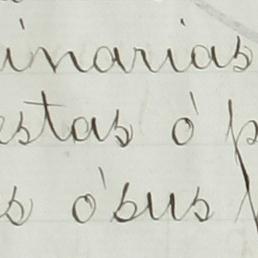 inarias
estas ó p
s ó sus p